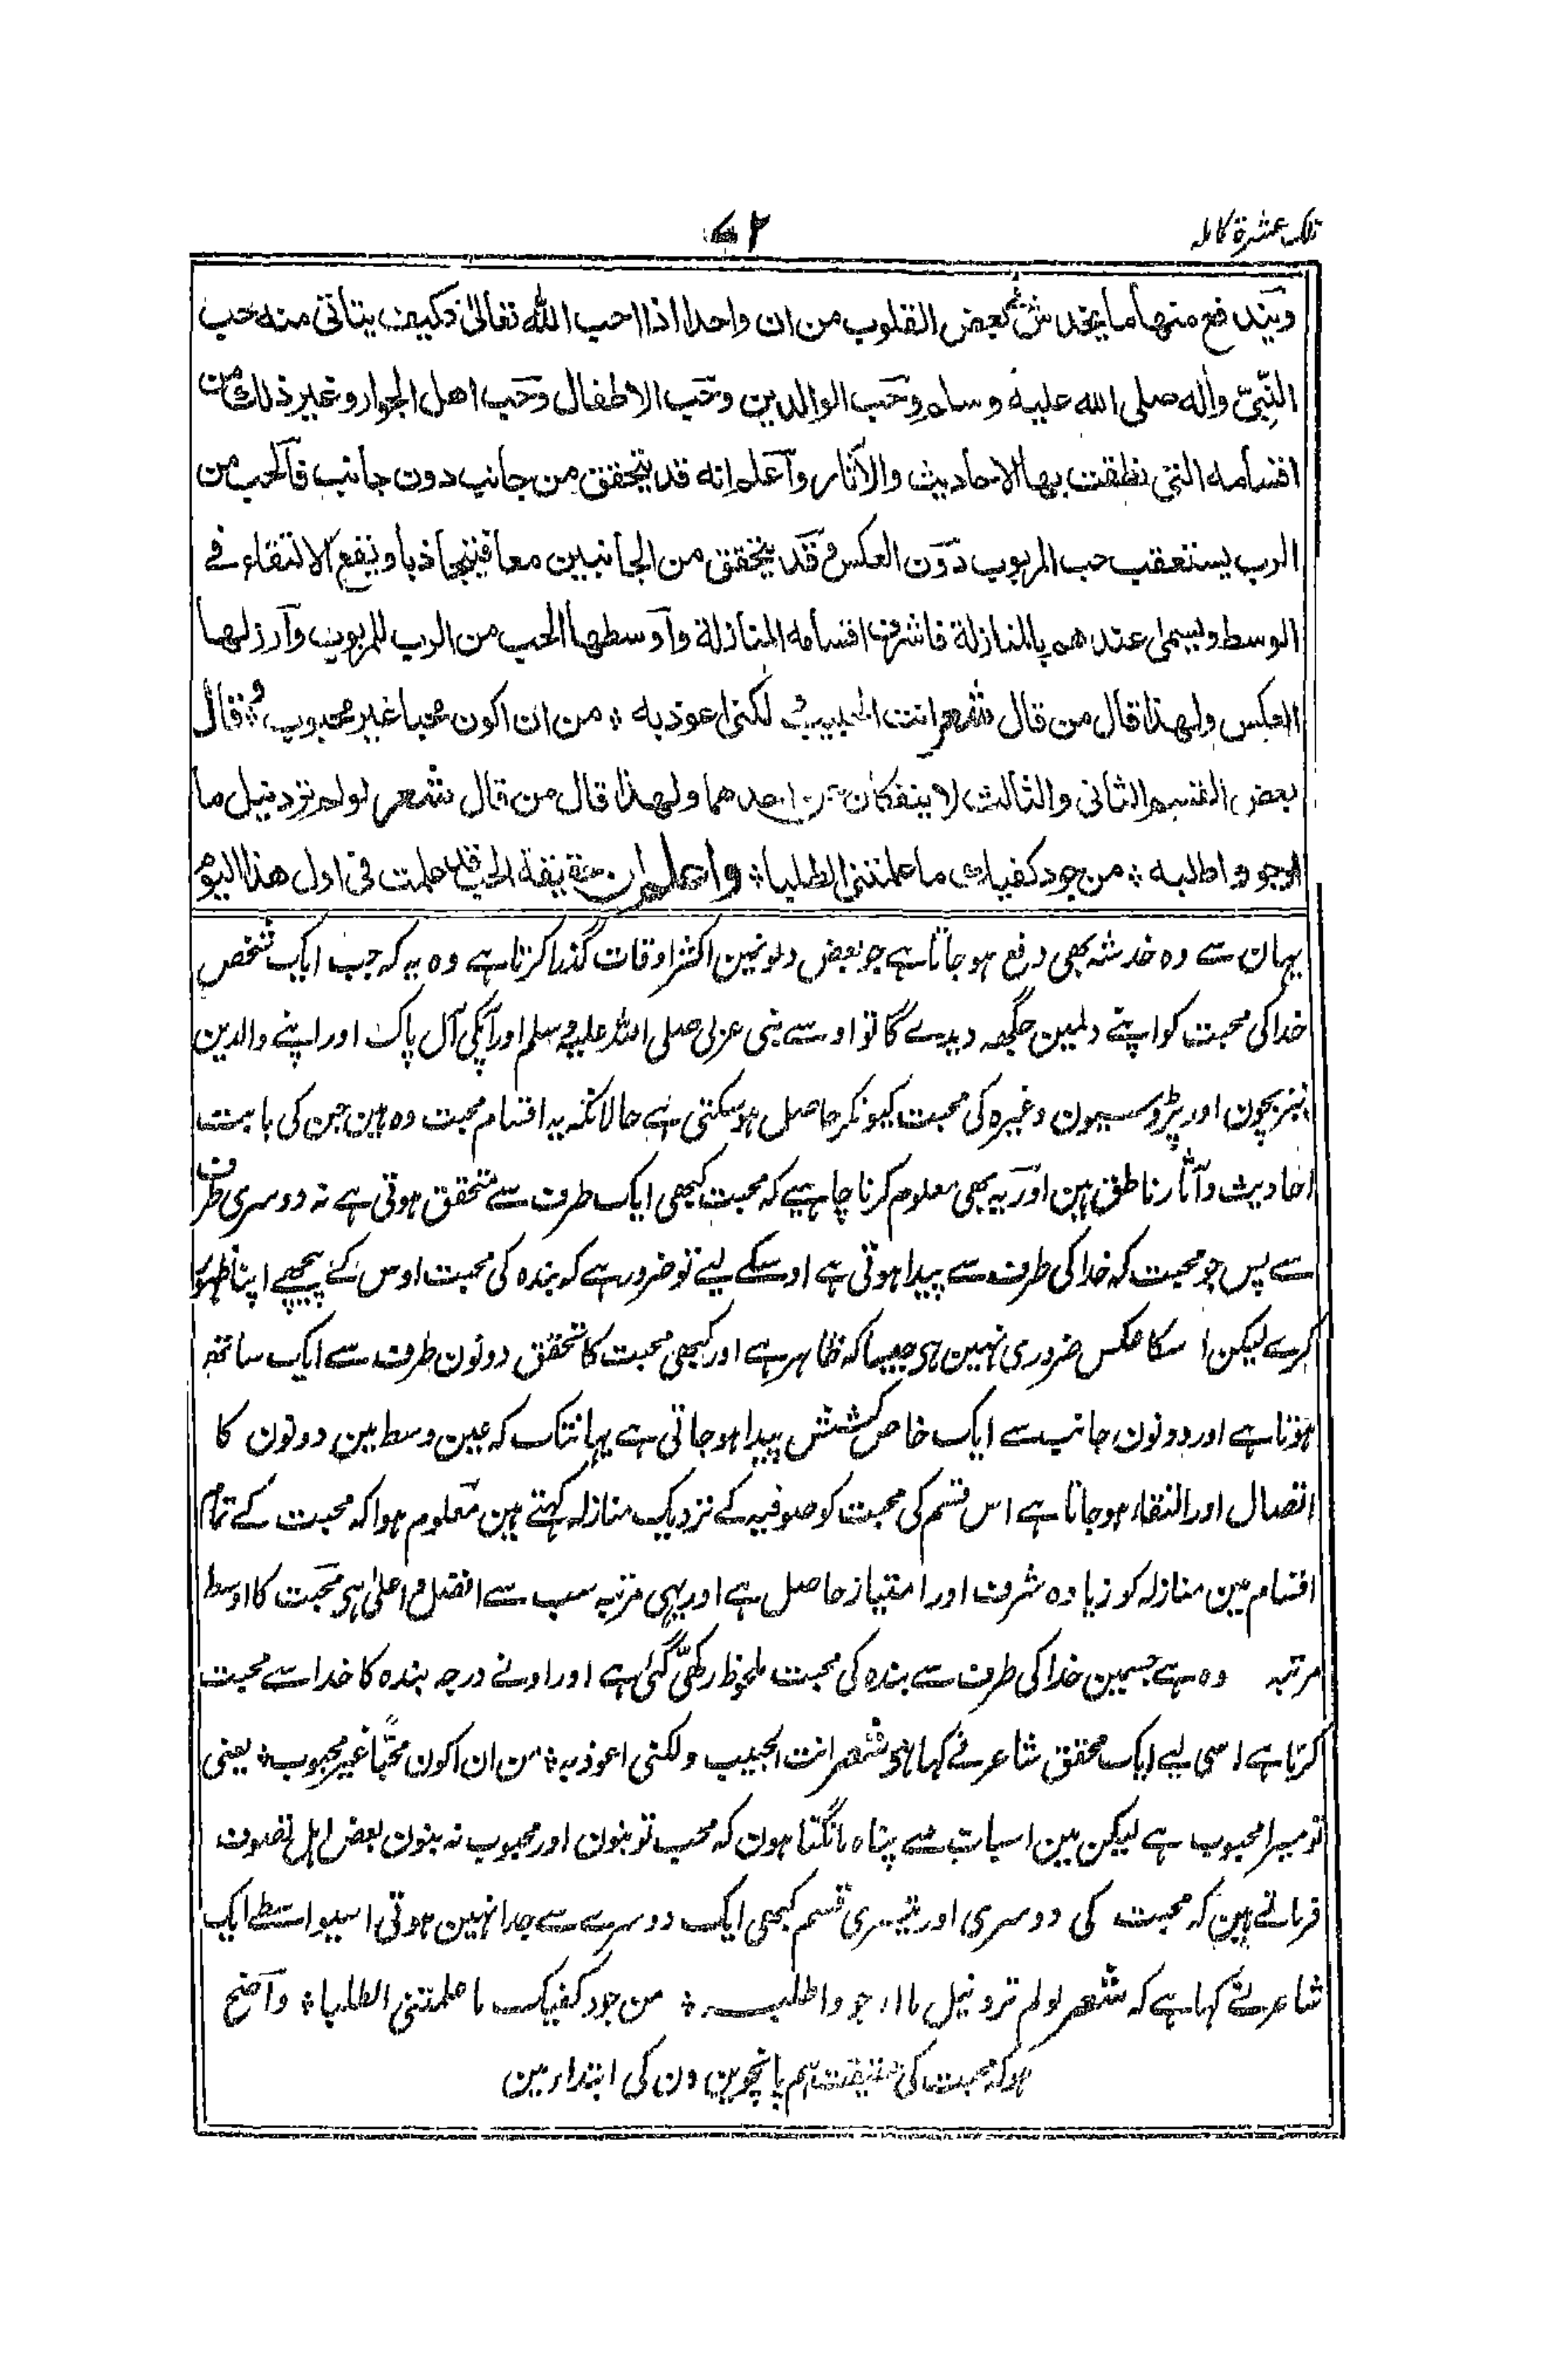 تلک عشرة کامله
۷۲
ویندفع منها ما یخدش بعض القلوب من ان واحدا اذا احب الله تعالیٰ فکیف یتأتی منه حب
النَّبِیّ واٰله صلی الله علیه وسلم وحَب الوالدین وحَب الاطفال وحَب اهل الجوار وغیر ذلک من
اقسامه التی نطقت بها الاحادیث والاٰثار واَعلم انه قد یتحقق من جانب دون جانب فاَلحب من
الرب یستعقب حب المربوب دون العکس وقَد یتحقق من الجانبین معا فیتجاذبا ویقع الالتقاء فے
الوسط ویسمی عندهم بالمنازلة فاشرف اقسامه المنازلة واَوسطها الحب من الرب للمربوب واَرذلها
العکس ولهذا قال من قال شعر انت الحبیب لکنی اعوذ به ؞ من ان اکون محبا غیر محبوب ؞ وقال
بعض القسم الثانی والثالث لا ینفکان من احدهما ولهذا قال من قال شعر لو لم ترد نیل ما
ارجو واطلبه ؞ من جود کفیک ما علمتنی الطلبا ؞ واعلم ان حقیقة الحب قد علمت فی اول هذا الیوم
یہان سے وہ خدشہ بھی دفع ہو جاتا ہے جو بعض دلونمین اکثر اوقات گذرا کرتا ہے وہ یہ کہ جب ایک شخص
خدا کی محبت کو اپنے دلمین جگہہ دیدے گا تو اوسے نبی عربی صلی اللہ علیہ وسلم اور آپکی آل پاک اور اپنے والدین
نیز بچون اور پڑوسیون وغیرہ کی محبت کیونکر حاصل ہو سکتی ہے حالانکہ یہ اقسام محبت وہ ہین جن کی بابت
احادیث و آثار ناطق ہین اور یہ بھی معلوم کرنا چاہیے کہ محبت کبھی ایک طرف سے متحقق ہوتی ہے نہ دوسری طرف
سے پس جو محبت کہ خدا کی طرف سے پیدا ہوتی ہے اوسکے لیے تو ضرور ہے کہ بندہ کی محبت اوس کے پیچھے اپنا ظہور
کرے لیکن اسکا عکس ضروری نہین ہی جیسا کہ ظاہر ہے اور کبھی محبت کا تحقق دونون طرف سے ایک ساتھ
ہوتا ہے اور دونون جانب سے ایک خاص کشش پیدا ہو جاتی ہے یہانتک کہ عین وسط مین دونون کا
اتصال اور التقاء ہو جاتا ہے اس قسم کی محبت کو صوفیہ کے نزدیک منازلہ کہتے ہین معلوم ہوا کہ محبت کے تمام
اقسام مین منازلہ کو زیادہ شرف اور امتیاز حاصل ہے اور یہی مرتبہ سب سے افضل و اعلیٰ ہی محبت کا اوسط
مرتبہ وہ ہے جسمین خدا کی طرف سے بندہ کی محبت ملحوظ رکھی گئی ہے اور ادنے درجہ بندہ کا خدا سے محبت
کرنا ہے اسی لیے ایک محقق شاعر نے کہا ہی شعر انت الحبیب ولکنی اعوذ بہ ؞ من ان اکون محبًّا غیر محبوب ؞ یعنی
تو میرا محبوب ہے لیکن مین اسبات سے پناہ مانگتا ہون کہ محب تو بنون اور محبوب نہ بنون بعض اہل تصوف
فرماتے ہین کہ محبت کی دوسری اور تیسری قسم کبھی ایک دوسرے سے جدا نہین ہوتی اسیواسطے ایک
شاعر نے کہا ہے کہ شعر لو لم ترد نیل ما ارجو واطلبہ ؞ من جود کفیک ما علمتنی الطلبا ؞ واضح
ہو کہ محبت کی حقیقت ہم پانچوین دن کی ابتدا مین